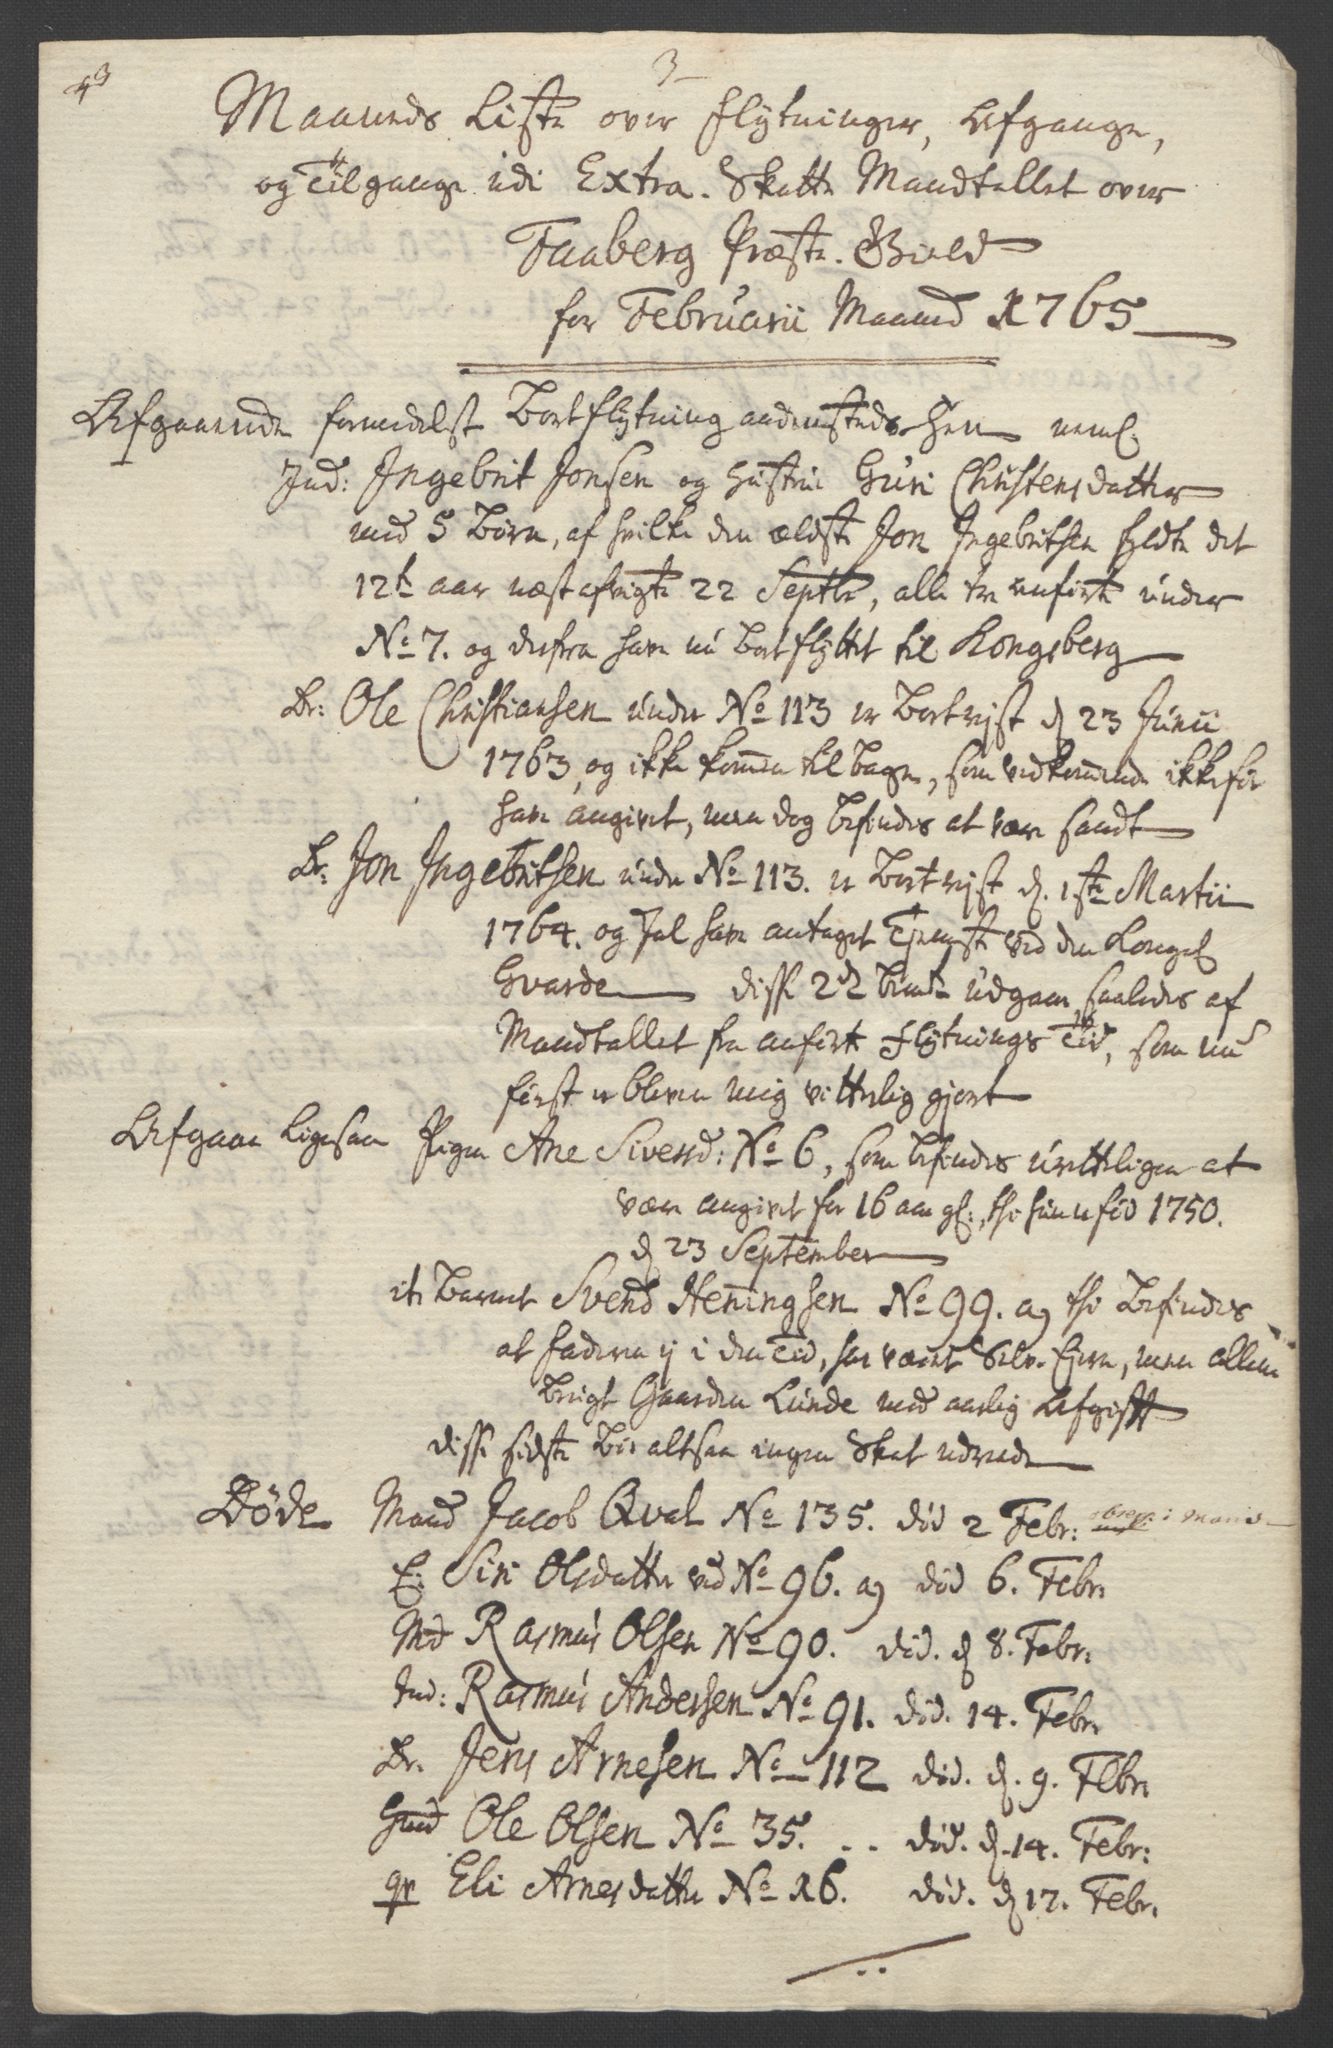 3
Maaneds Liste over Flytninger, Afgange,
og Tilgange udi Extra-Skatte Mandtallet over
Faaberg Præste-Gield
for Februarii Maaned 1765
Afgaaende formedelst Bortflytning andenstedshen neml.
Ind: Ingebrit Jonsen og Hustrue Guri Christensdatter
med 5 Børn, af hvilke den ældste Jon Ingebritsen fyldte det
12te aar næstafvigte 22 Septbr, alle ere anførte under
No 7. og derfra have nu bortflyttet til Kongsberg
Dr: Ole Christiansen under No 113 er Bortrejst d 23 Junii
1763, og ikke kommen tilbage, som vedkommende ikke før
have angivet, men dog befindes at være sandt
Dr. Jon Ingebritsen under No 113. er Bortrejst d. 1ste Martii
1764. og skal have antaget Tjeneste ved den Kongel
Gvarde disse 2de sidste udgaar saaledes af
Mandtallet fra anførte Flytnings Tid, som nu
først er bleven mig vitterlig gjort
Afgaar ligesaa Pigen Ane Siversd: No 6, som befindes urettelig at
være angivet for 16 aar gl:, thi hun er fød 1750.
d 23 September
it: Barnet Svend Henningsen No 99. a) thi befindes
at Faderen ej i den Tid, har været Selv-Ejer, men allene
brugt Gaarden Lunde med aarlig Afgift
disse sidste bør altsaa ingen Skat udrede
Døde Mand Jacob Qval No 135. død 2 Febr:
E: Siri Olsdatter ved No 96. a) død 6. Febr.
Md Rasmus Olsen No 90. død. d 8. Febr:
Ind: Rasmus Andersen No 91. død. 14. Febr.
Dr. Jens Arnesen No 112 død. d. 9. Febr.
Ole Olsen No 35. .. død. d. 14. Febr:
qv Eli Arnesdatter No 16. død. d 17. Febr.